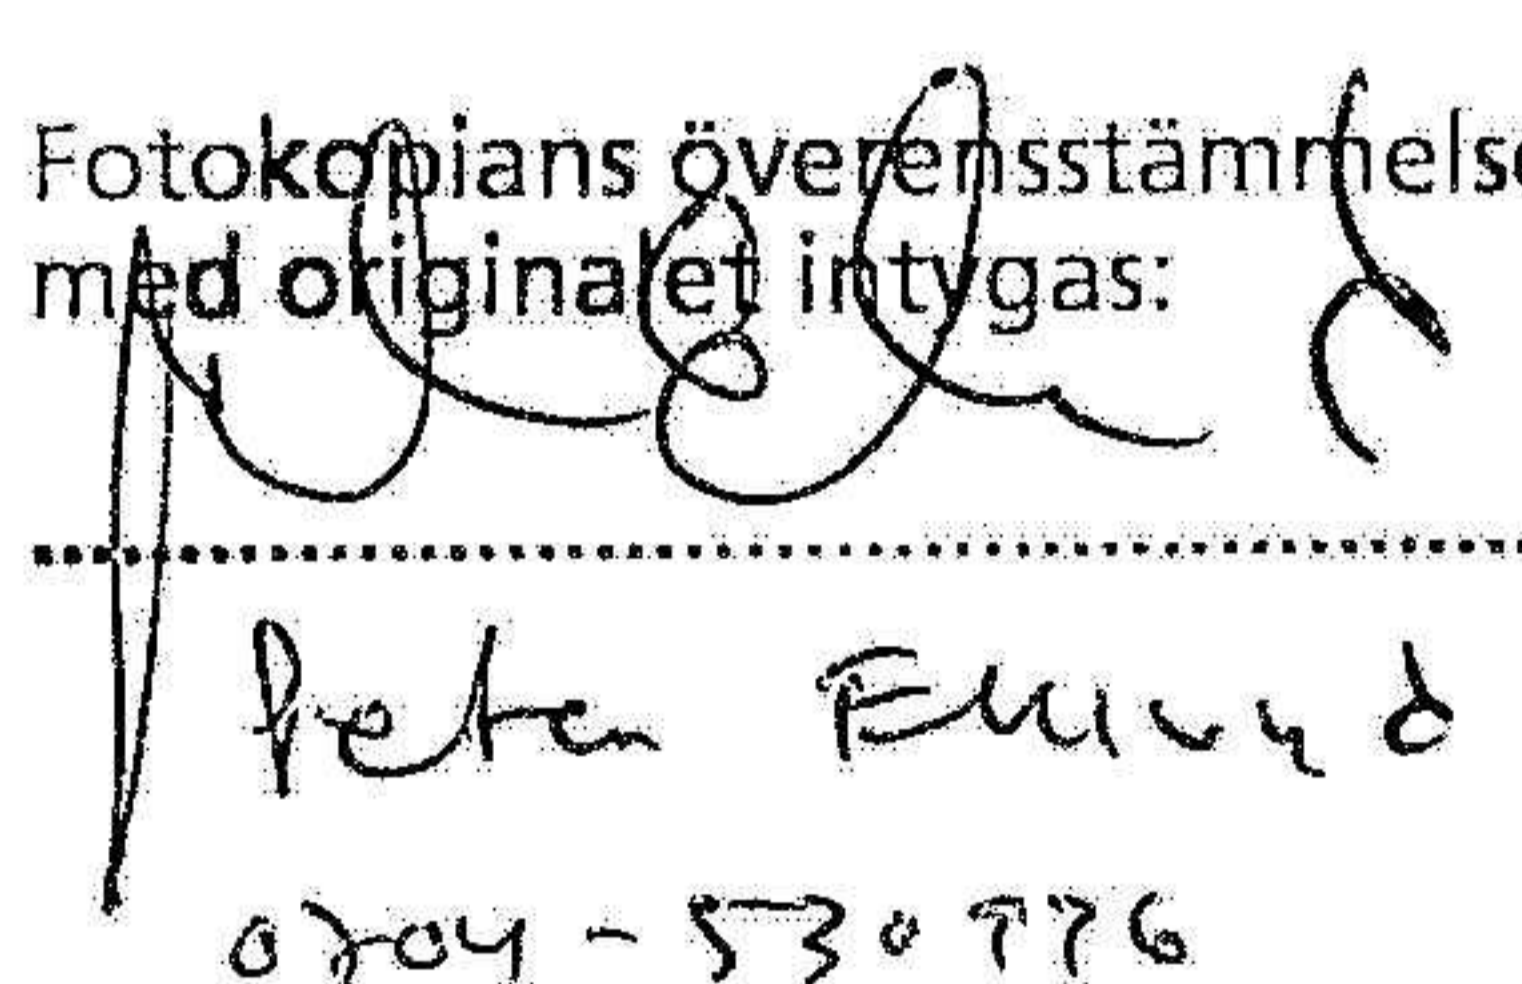 Fotokopians överensstämmelse
med originalet intygas:
Peter
0704-530776